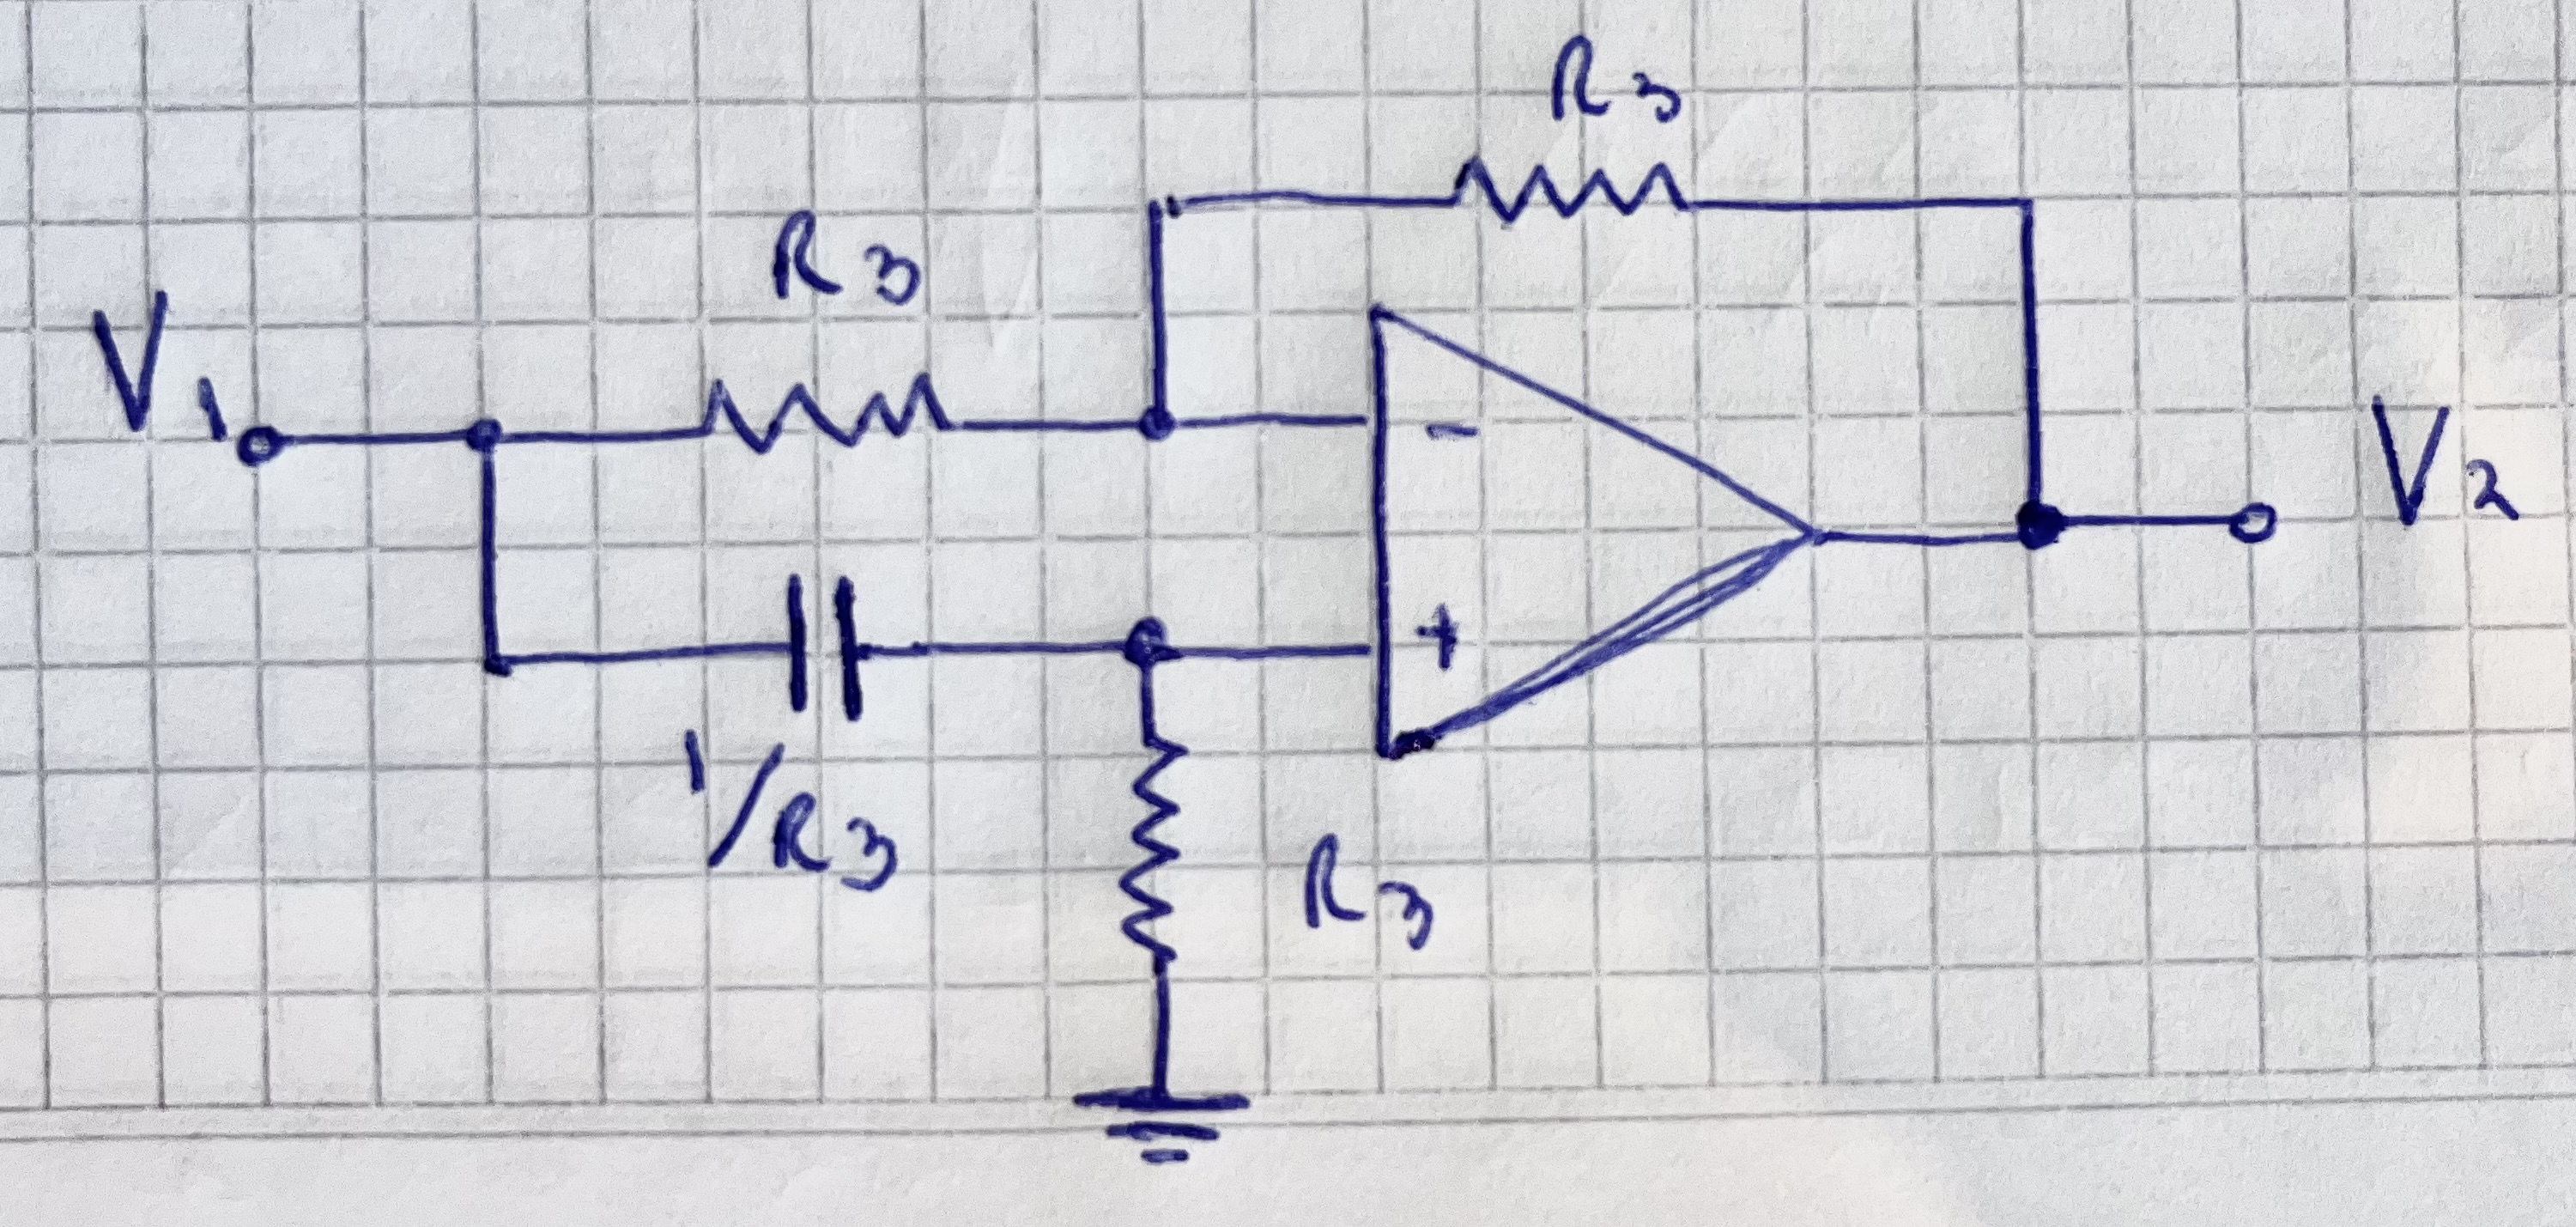 R3
R3
V1
-
V2
+
1/R3
R3